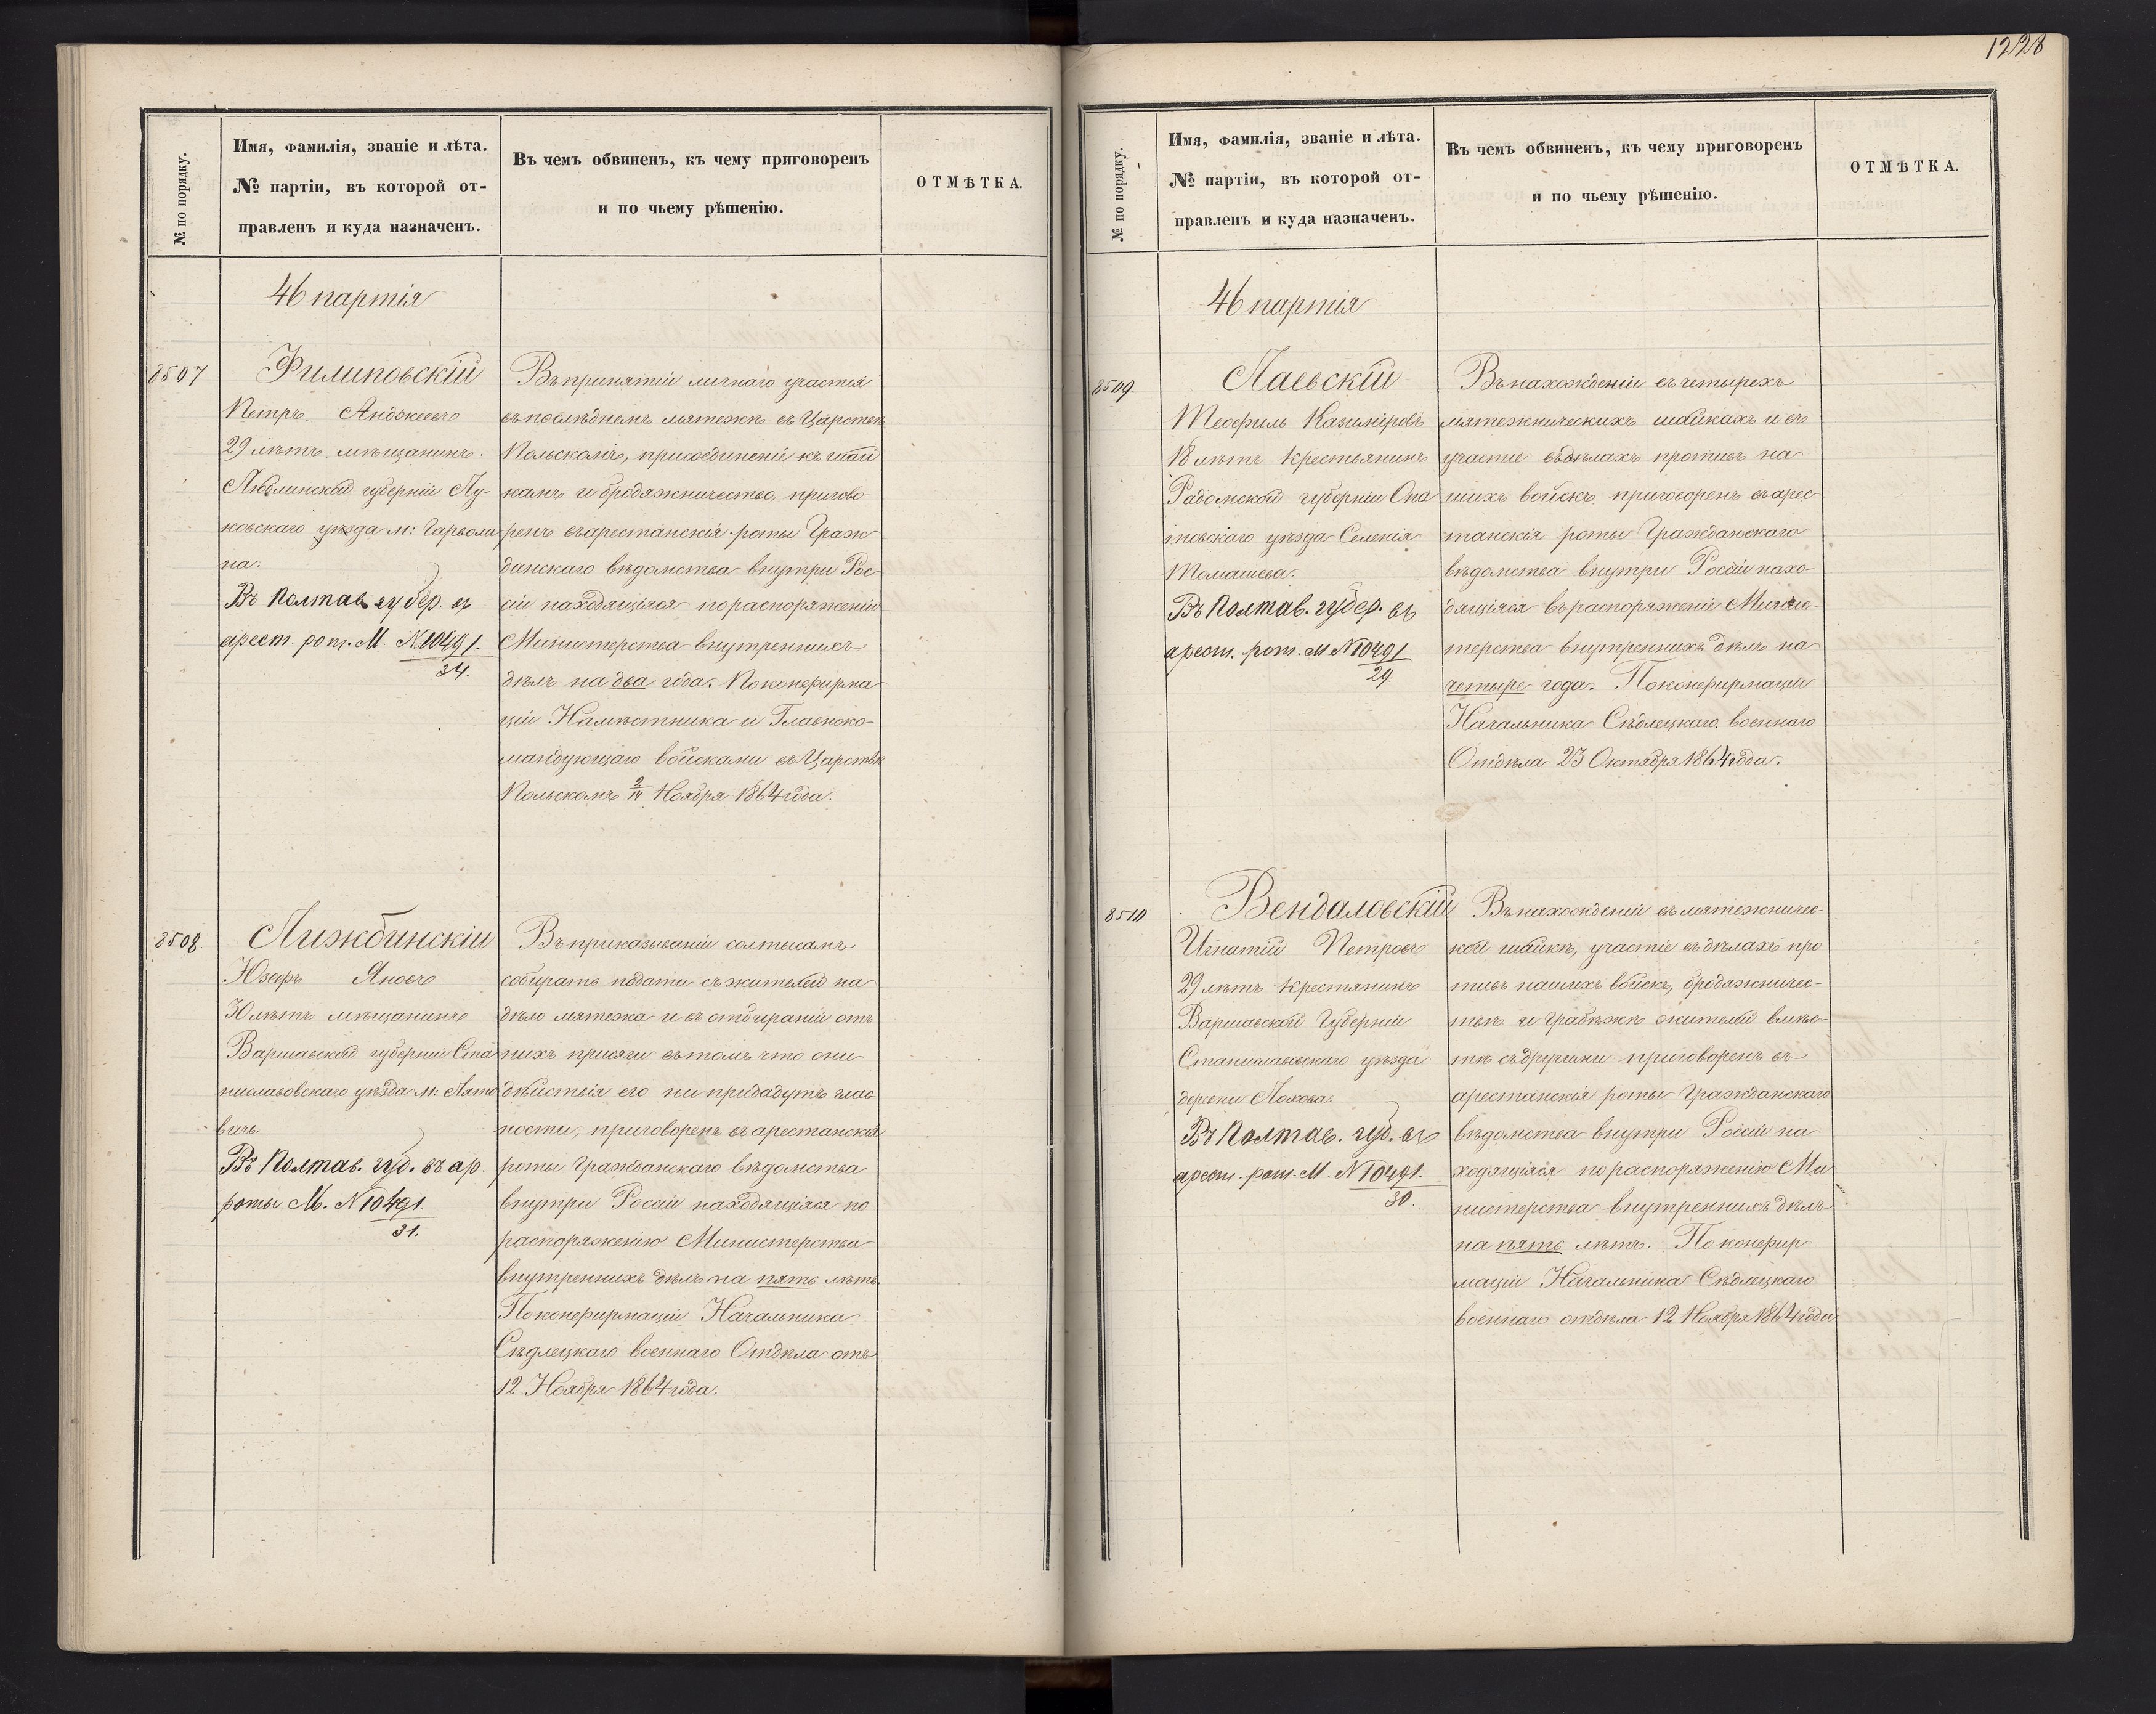 1228
№ по порядку.
Имя, фамилія, званіе и лѣта.
№ партіи, въ которой от-
правленъ и куда назначенъ.
Въ чемъ обвиненъ, къ чему приговоренъ
и по чьему рѣшенію.
ОТМѢТКА.
46 партія
8507
Филиповскій
Петръ Анджеевъ
29 лѣтъ мѣщанинъ.
Люблинской губерніи Лу-
ковскаго уѣзда м: Гарволи
на.
Въ Полтав губер. въ
арест. рот. М. N 10491.
34.
Въ принятіи личнаго участія
въ послѣднемъ мятежѣ въ Царствѣ
Польскомъ, присоединеніе къ шай
камъ и бродяжничество, пригово-
ренъ въ арестанскія роты Граж
данскаго вѣдомства внутри Рос
сіи находящіяся по распоряженію
Министерства внутреннихъ
дѣлъ на два года. По конфирма
ціи Намѣстника и Главноко-
мандующаго войсками въ Царствѣ
Польскомъ 2/14 Ноября 1864 года.
8508.
Лижбинскій
Юзефъ Яновъ
30 лѣтъ мѣщанинъ
Варшавской губерніи Ста
ниславовскаго уѣзда м: Лято
вичъ.
Въ Полтав. губ. въ ар.
роты М. N 10491.
31.
Въ приказываніи солтысамъ
собирать подати съ жителей на
дѣло мятежа и въ отбираніи отъ
нихъ присяги въ томъ что они
дѣйствія его ни придадутъ глас
ности, приговоренъ въ арестанскія
роты Гражданскаго вѣдомства
внутри Россіи находящіяся по
распоряженію Министерства
внутреннихъ дѣлъ на пять лѣтъ.
По конфирмаціи Начальника
Сѣдлецкаго военнаго Отдѣла отъ
12 Ноября 1864 года.
№ по порядку.
Имя, фамилія, званіе и лѣта.
№ партіи, въ которой от-
правленъ и куда назначенъ.
Въ чемъ обвиненъ, къ чему приговоренъ
и по чьему рѣшенію.
ОТМѢТКА.
46 партія
8509.
Лаевскій
Теофиль Казиміровъ
18 лѣтъ крестьянинъ
Радомской губерніи Опа
товскаго уѣзда Селенія
Томашева.
Въ Полтав. губер. въ
арест. рот. М N 10491
29.
Въ нахожденіи въ четырехъ
мятежническихъ шайкахъ и въ
участіе въ дѣлахъ противъ на
шихъ войскъ, приговоренъ въ арес-
танскія роты Гражданскаго
вѣдомства внутри Россіи нахо-
дящіяся въ распоряженіе Минис-
терства внутреннихъ дѣлъ на
четыре года. По конфирмаціи
Начальника Сѣдлецкаго военнаго
Отдѣла 23 Октября 1864 года.
8510
Вендаловскій
Игнатій Петровъ
29 лѣтъ крестянинъ
Варшавской Губерніи
Станиславовскаго уѣзда
деревни Лохова.
Въ Полтав. губ. въ
арест. рот. М. N 10491.
30.
Въ нахожденіи въ мятежничес-
кой шайкѣ, участіе въ дѣлахъ про
тивъ нашихъ войскъ, бродяжничес-
твѣ и грабежѣ жителей вмѣс-
тѣ съ другими приговоренъ въ
арестанскія роты Гражданскаго
вѣдомства внутри Россіи на
ходящіяся по распоряженію Ми
нистерства внутреннихъ дѣлъ
на пять лѣтъ. По конфир
маціи Начальника Сѣдлецкаго
военнаго отдѣла 12 Ноября 1864 года